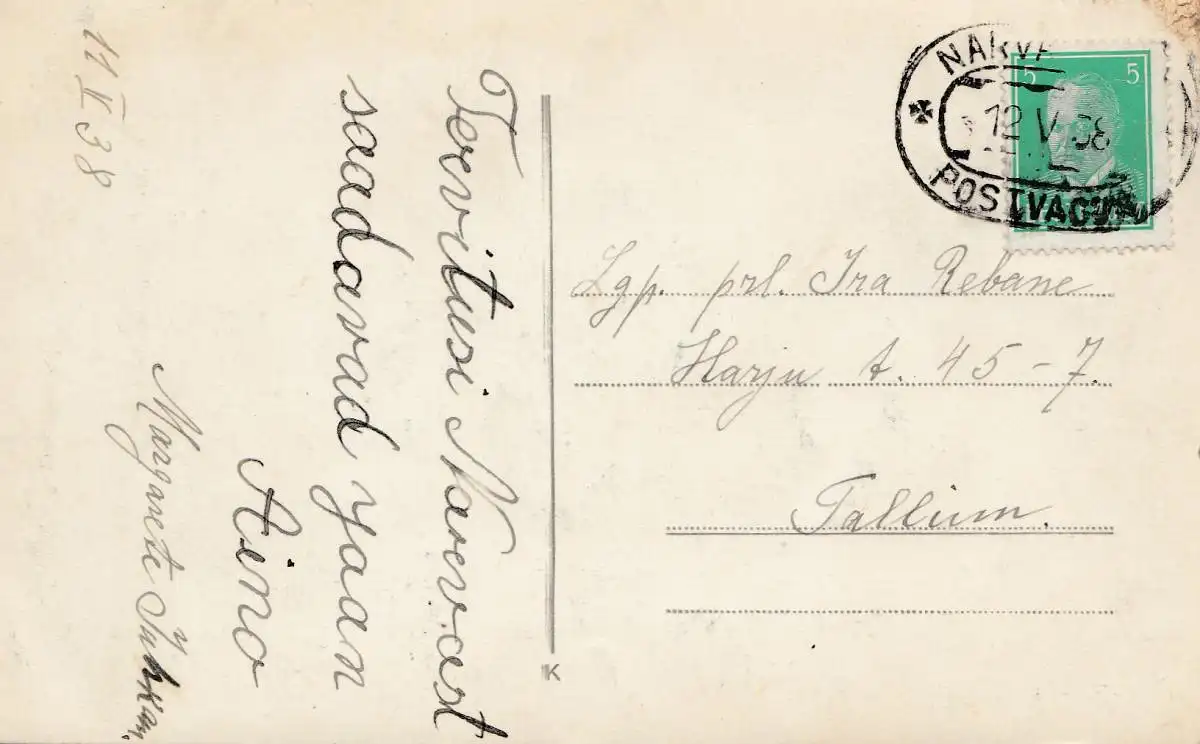 11 V 38
Tervitusi Narvast
saadavad Jaan
Aino
Margarete
NARVA
12 V 38
POSTVAGUN
5 5
Lgp. prl. Ira Rebane
Harju t. 45-7.
Tallinn.
K